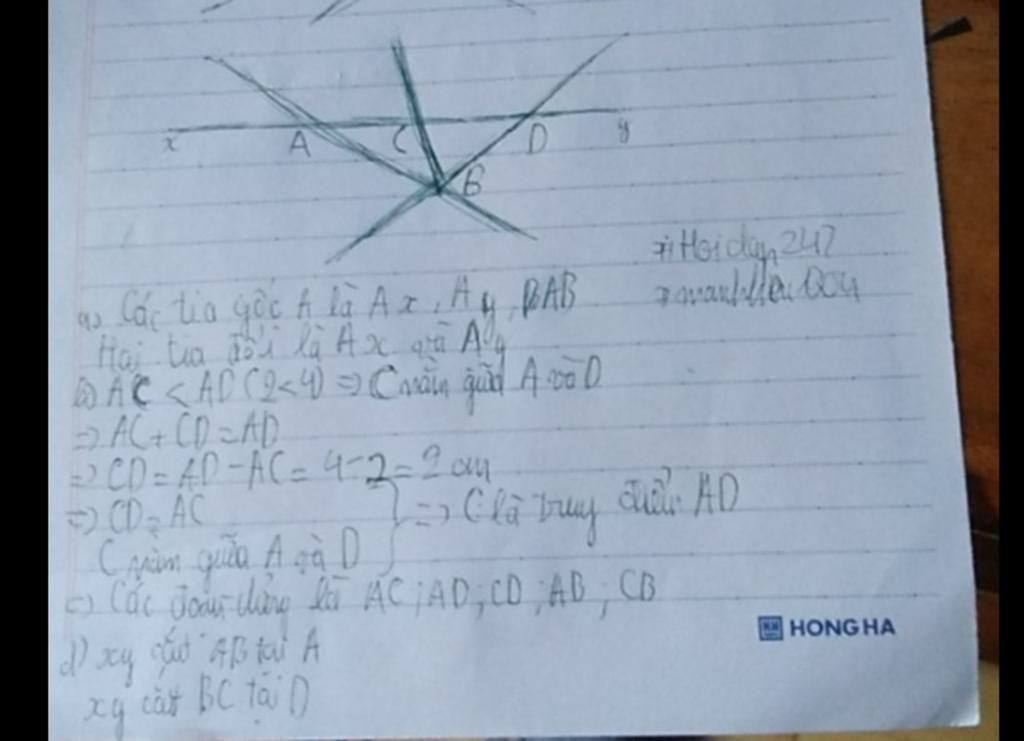 x A C D y
B
Hoidap247
manhhieu004
a, Các tia gốc A là Ax, Ay, AB
Hai tia đối là Ax và Ay
b) AC < AD (2<4) => C nằm giữa A và D
=> AC + CD = AD
=> CD = AD - AC = 4 - 2 = 2 cm
=> CD = AC
C nằm giữa A và D } => C là trung điểm AD
c) Các đoạn thẳng là AC; AD; CD; AB; CB
HONG HA
d) xy cắt AB tại A
xy cắt BC tại D